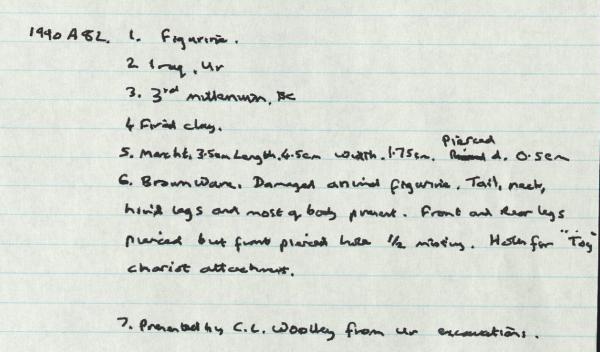 1990 A 82. 1. Figurine.
2 Iraq, Ur
3. 3rd millennium, BC
4 Fired clay.
Pierced
5. Max ht. 3.5cm Length. 4.5cm Width. 1.75cm. d. 0.5cm
6. Brown Ware. Damaged animal figurine. Tail, neck,
hind legs and most of body present. Front and Rear legs
pierced but front pierced hole 1/2 missing. Holes for "Toy"
chariot attachment.
7. Presented by C.L. Woolley from Ur excavations.